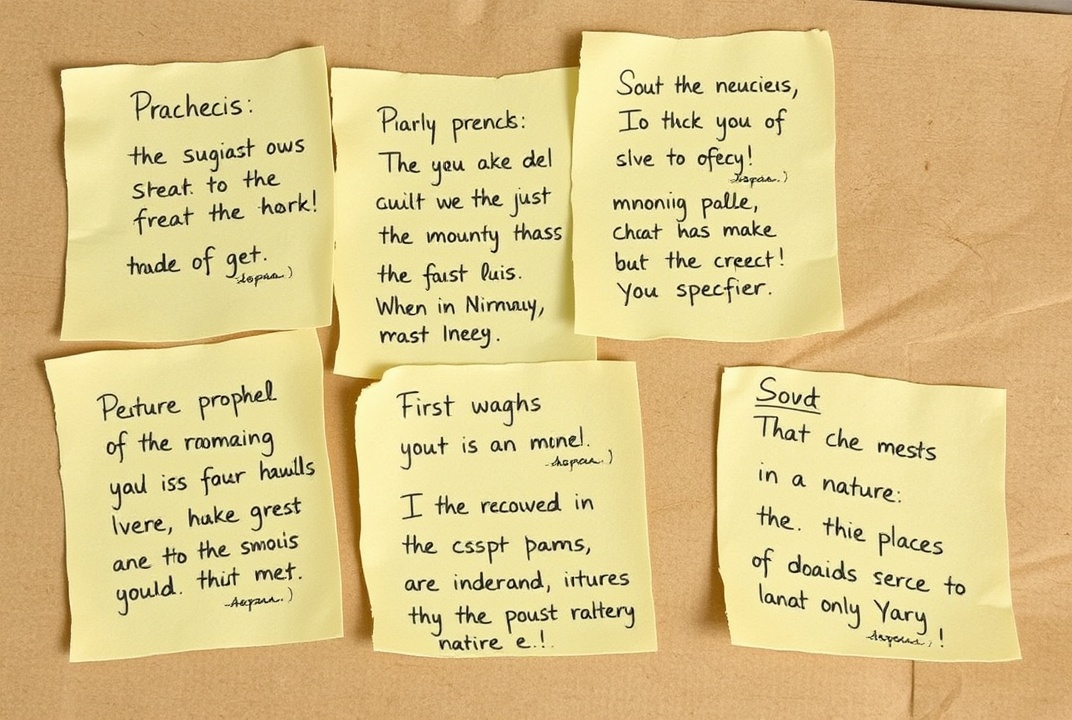 Prachecis:
the sugiast ows
steat. to the
freat the hork!
trude of get.
Piarly prencks:
The you ake del
cuilt we the just
the mounty thass
the faist luis.
When in
mast Ineey.
Sout the neuciers,
Io thck you of
slve to ofecy!
mnoniig palle,
chcat has make
but the creect!
You specfier.
Peiture prophel
of the roomaing
yaul iss four
lvere, huke grest
ane tto the smouis
gould. thiut met.
First waghs
yout is an
I the recowed in
the csspt pams,
are inderand, irtures
thy the poust raltery
natire e.!.
Soud
That che mests
in a nature:
the. thie places
of doaids serce to
lanat only Yary
!